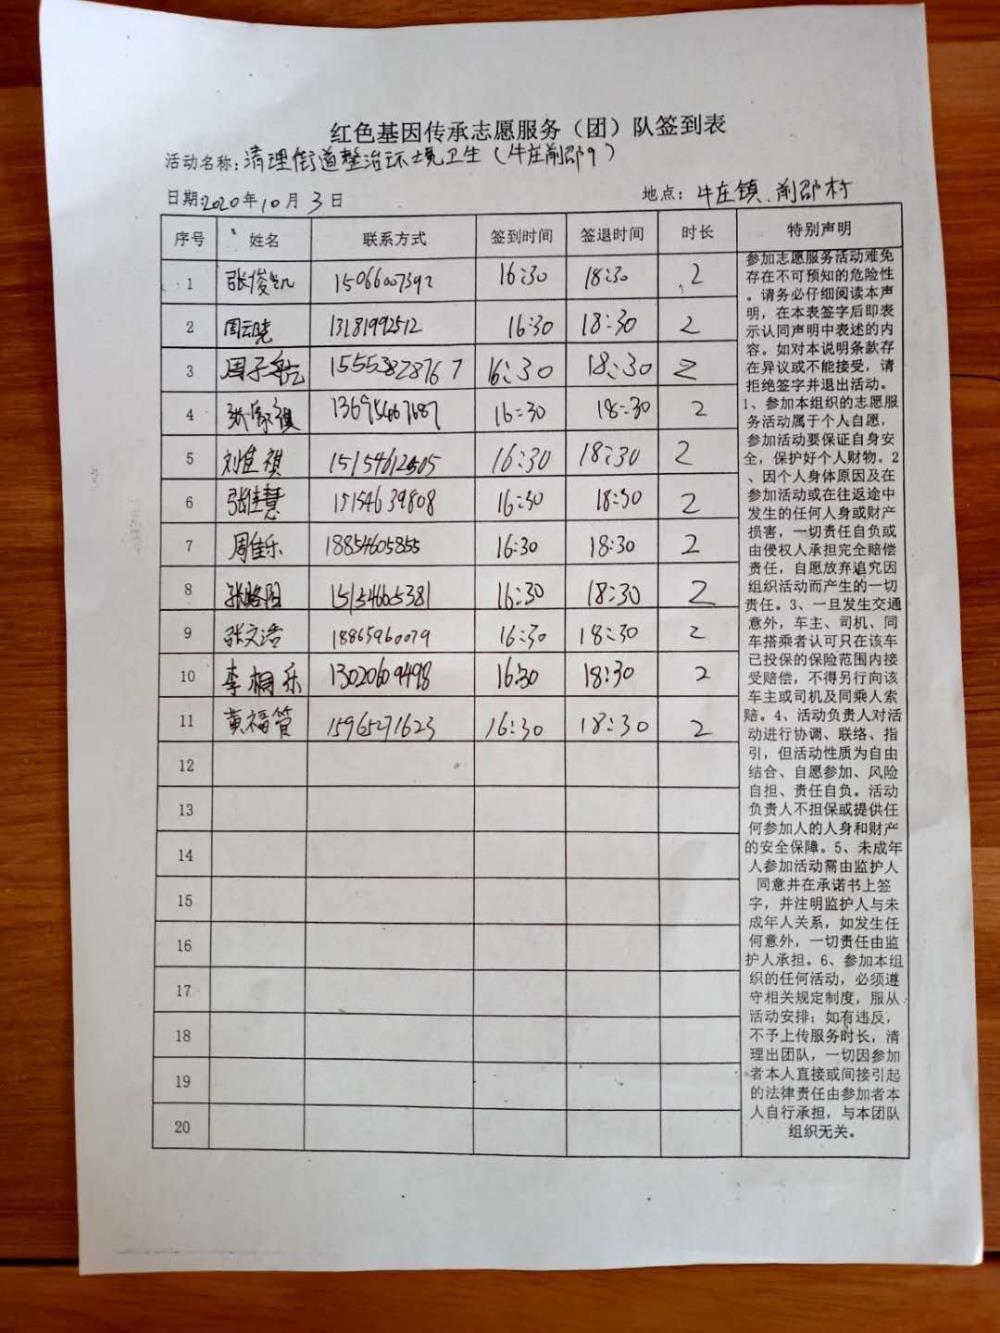 红色基因传承志愿服务（团）队签到表
活动名称：清理街道整治环境卫生（牛庄前邵9）
日期：2020年10月3日 地点：牛庄镇.前邵村
序号 姓名 联系方式 签到时间 签退时间 时长 特别声明
1 张俊凯 15066007392 16:30 18:30 2
2 周云晓 13181992512 16:30 18:30 2
3 周子 15553828767 16:30 18:30 2
4 张 祺 13695467687 16:30 18:30 2
5 刘佳祺 15154612505 16:30 18:30 2
6 张佳慧 15154639808 16:30 18:30 2
7 周佳乐 18854605855 16:30 18:30 2
8 张 阳 15154605381 16:30 18:30 2
9 张文浩 18865960079 16:30 18:30 2
10 李桐乐 13020609498 16:30 18:30 2
11 黄福管 15965271623 16:30 18:30 2
12
13
14
15
16
17
18
19
20
参加志愿服务活动难免
存在不可预知的危险性
。请务必仔细阅读本声
明，在本表签字后即表
示认同声明中表述的内
容。如对本说明条款存
在异议或不能接受，请
拒绝签字并退出活动。
1、参加本组织的志愿服
务活动属于个人自愿，
参加活动要保证自身安
全，保护好个人财物。2
、因个人身体原因及在
参加活动或在往返途中
发生的任何人身或财产
损害，一切责任自负或
由侵权人承担完全赔偿
责任，自愿放弃追究因
组织活动而产生的一切
责任。3、一旦发生交通
意外，车主、司机、同
车搭乘者认可只在该车
已投保的保险范围内接
受赔偿，不得另行向该
车主或司机及同乘人索
赔。4、活动负责人对活
动进行协调、联络、指
引，但活动性质为自由
结合、自愿参加、风险
自担、责任自负。活动
负责人不担保或提供任
何参加人的人身和财产
的安全保障。5、未成年
人参加活动需由监护人
同意并在承诺书上签
字，并注明监护人与未
成年人关系，如发生任
何意外，一切责任由监
护人承担。6、参加本组
织的任何活动，必须遵
守相关规定制度，服从
活动安排；如有违反，
不予上传服务时长，清
理出团队，一切因参加
者本人直接或间接引起
的法律责任由参加者本
人自行承担，与本团队
组织无关。